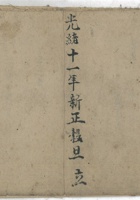 光緒十一年新正穀旦 立